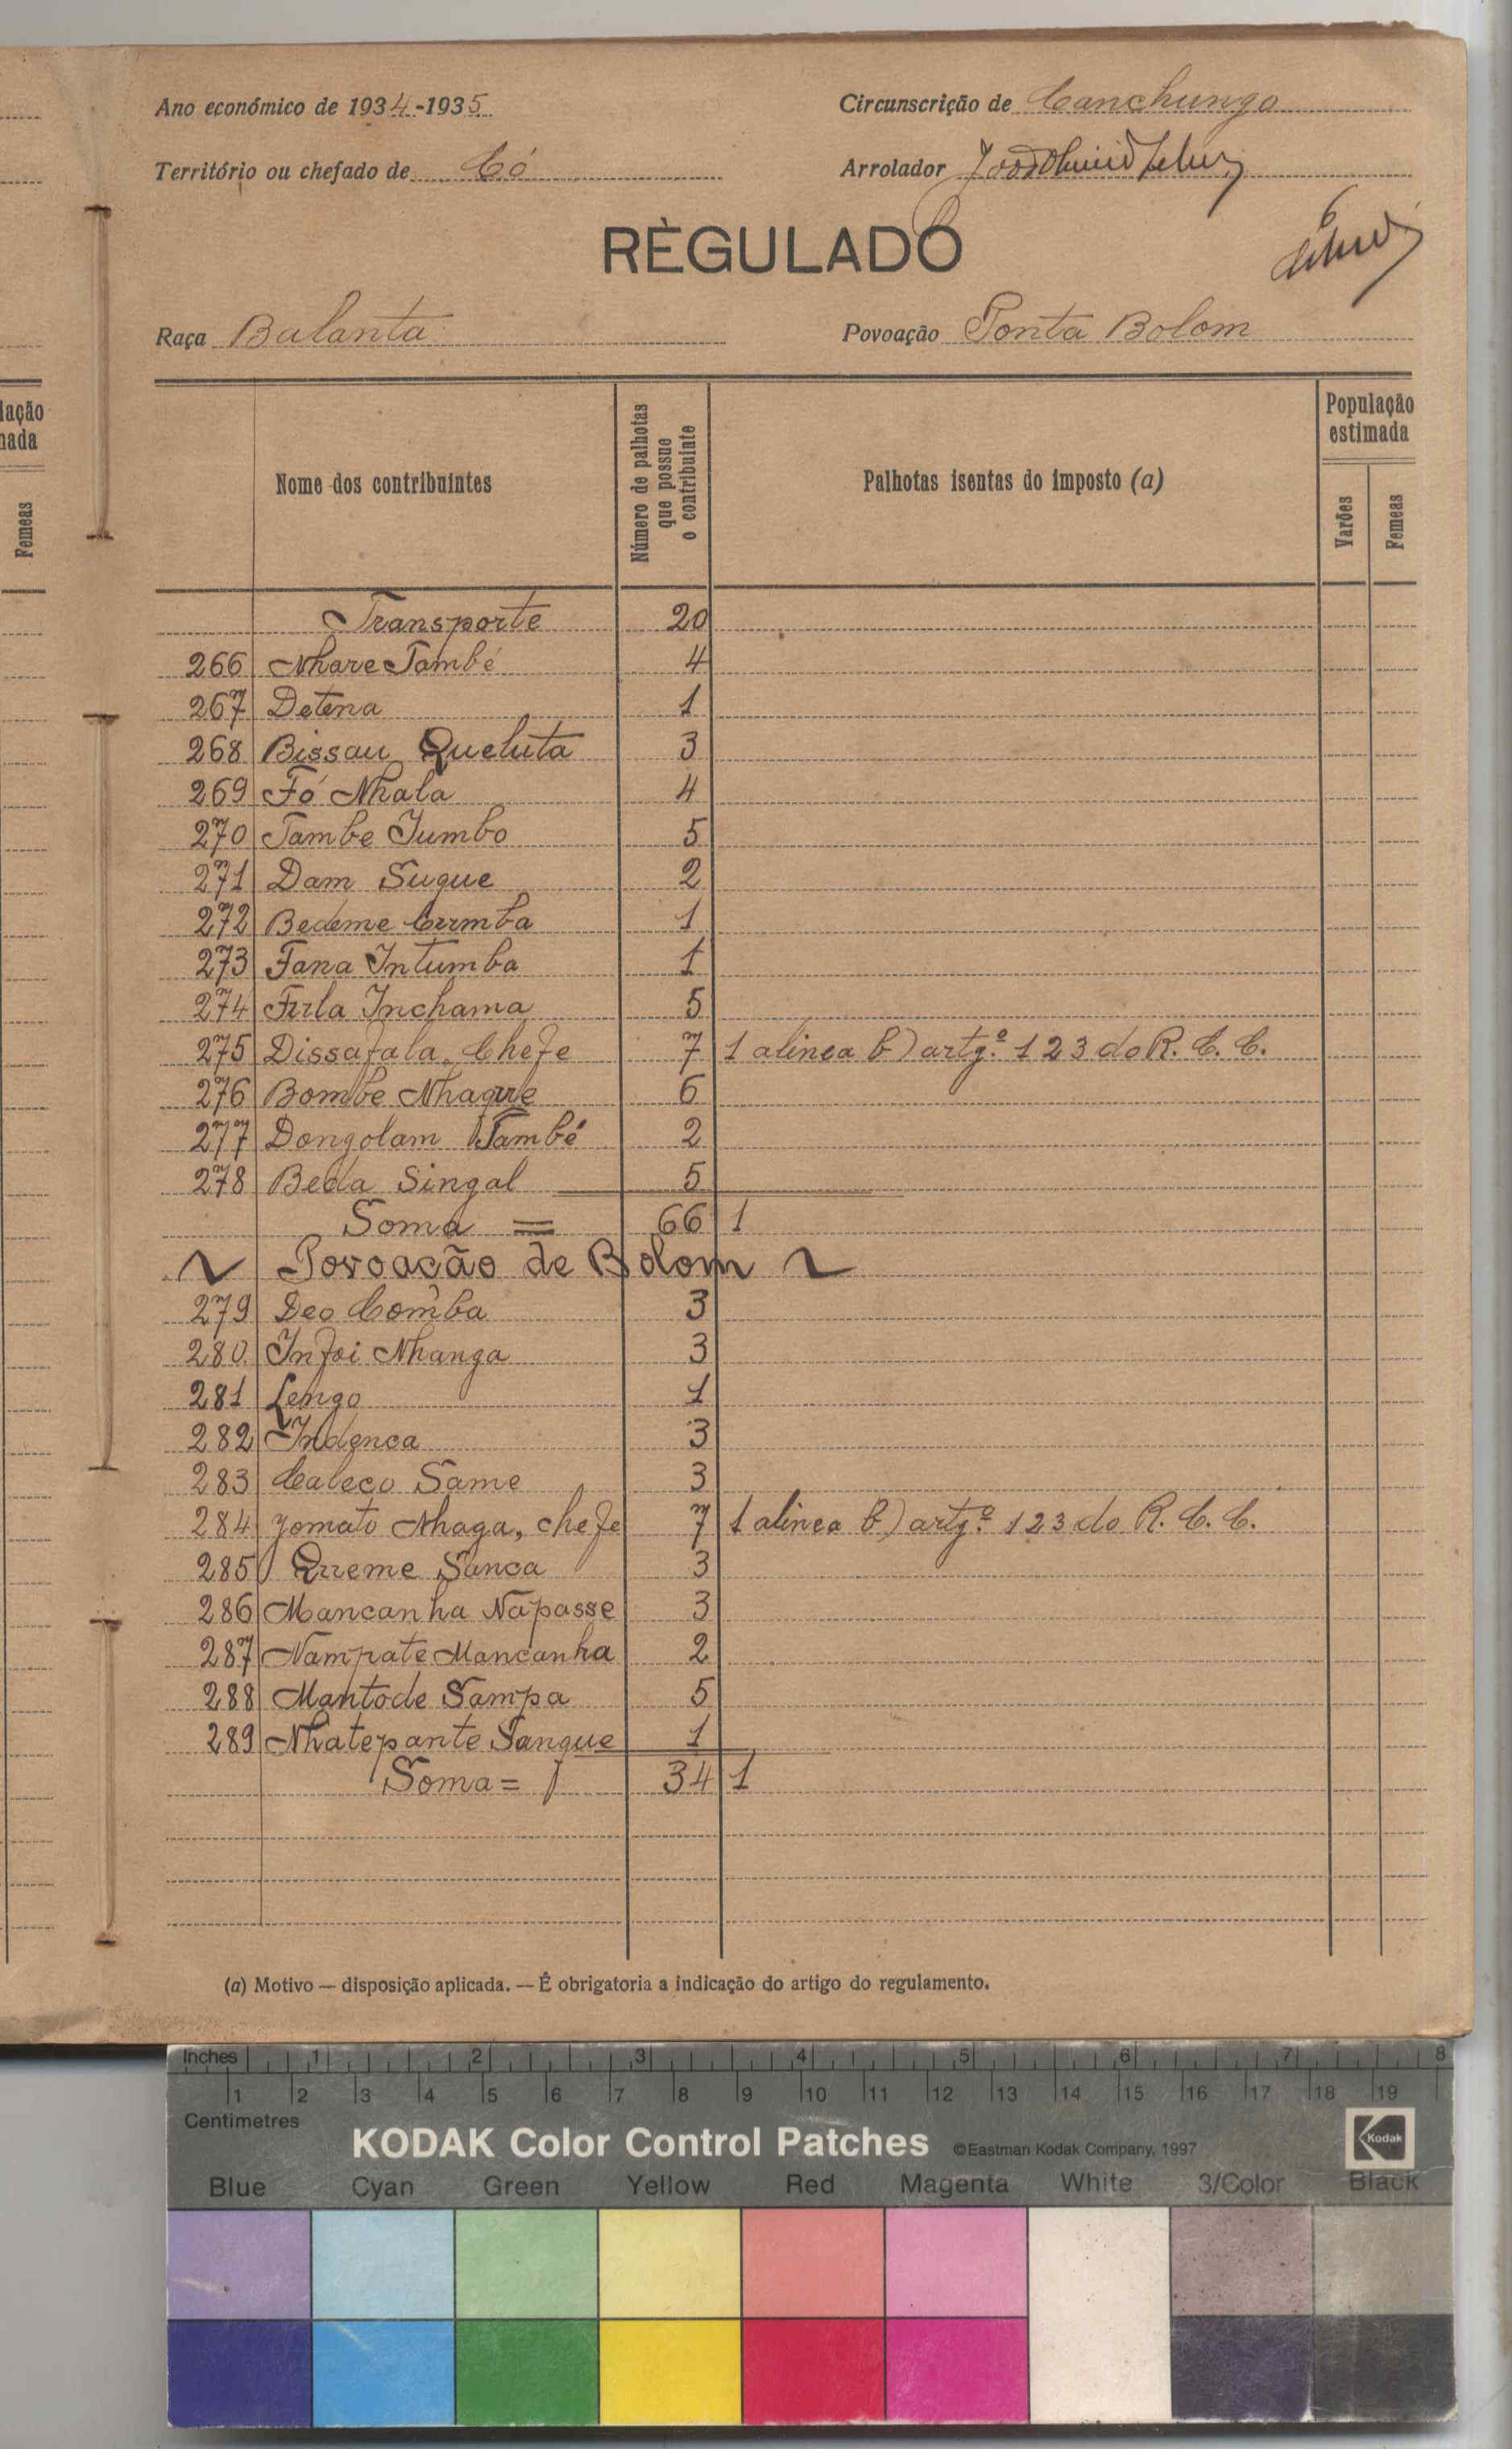 Ano económico de 1934-1935 Circunscrição de Canchungo
Território ou chefado de Có Arrolador
RÈGULADO
6
Raça Balanta Povoação Ponta Bolom
lação
nada
Femeas
Nome dos contribuintes
Número de palhotas que possue o contribuinte
Palhotas isentas do imposto (a)
População estimada
Varões
Femeas
Transporte 20
266 Nhare També 4
267 Detena 1
268 Bissau Queluta 3
269 Fó Nhala 4
270 Tambe Jumbo 5
271 Dam Sugue 2
272 Bedeme Cumba 1
273 Fana Intumba 1
274 Fula Inchama 5
275 Dissafala, Chefe 7 1 alinea b) artg.º 123 do R. C. C.
276 Bombe Nhague 6
277 Dongolam També 2
278 Beda Singal 5
Soma = 66 1
Povoação de Bolom
279 Deo Comba 3
280 Infoi Nhanga 3
281 Lengo 1
282 Indenca 3
283 Caleco Same 3
284 Yomato Nhaga, chefe 7 1 alinea b) artg.º 123 do R. C. C.
285 Queme Sanca 3
286 Mancanha Napasse 3
287 Nampate Mancanha 2
288 Mantode Sampa 5
289 Nhatepante Sanque 1
Soma = 34 1
(a) Motivo — disposição aplicada. — É obrigatoria a indicação do artigo do regulamento.
Inches 1 2 3 4 5 6 7 8
1 2 3 4 5 6 7 8 9 10 11 12 13 14 15 16 17 18 19
Centimetres
KODAK Color Control Patches ©Eastman Kodak Company, 1997 Kodak
Blue Cyan Green Yellow Red Magenta White 3/Color Black